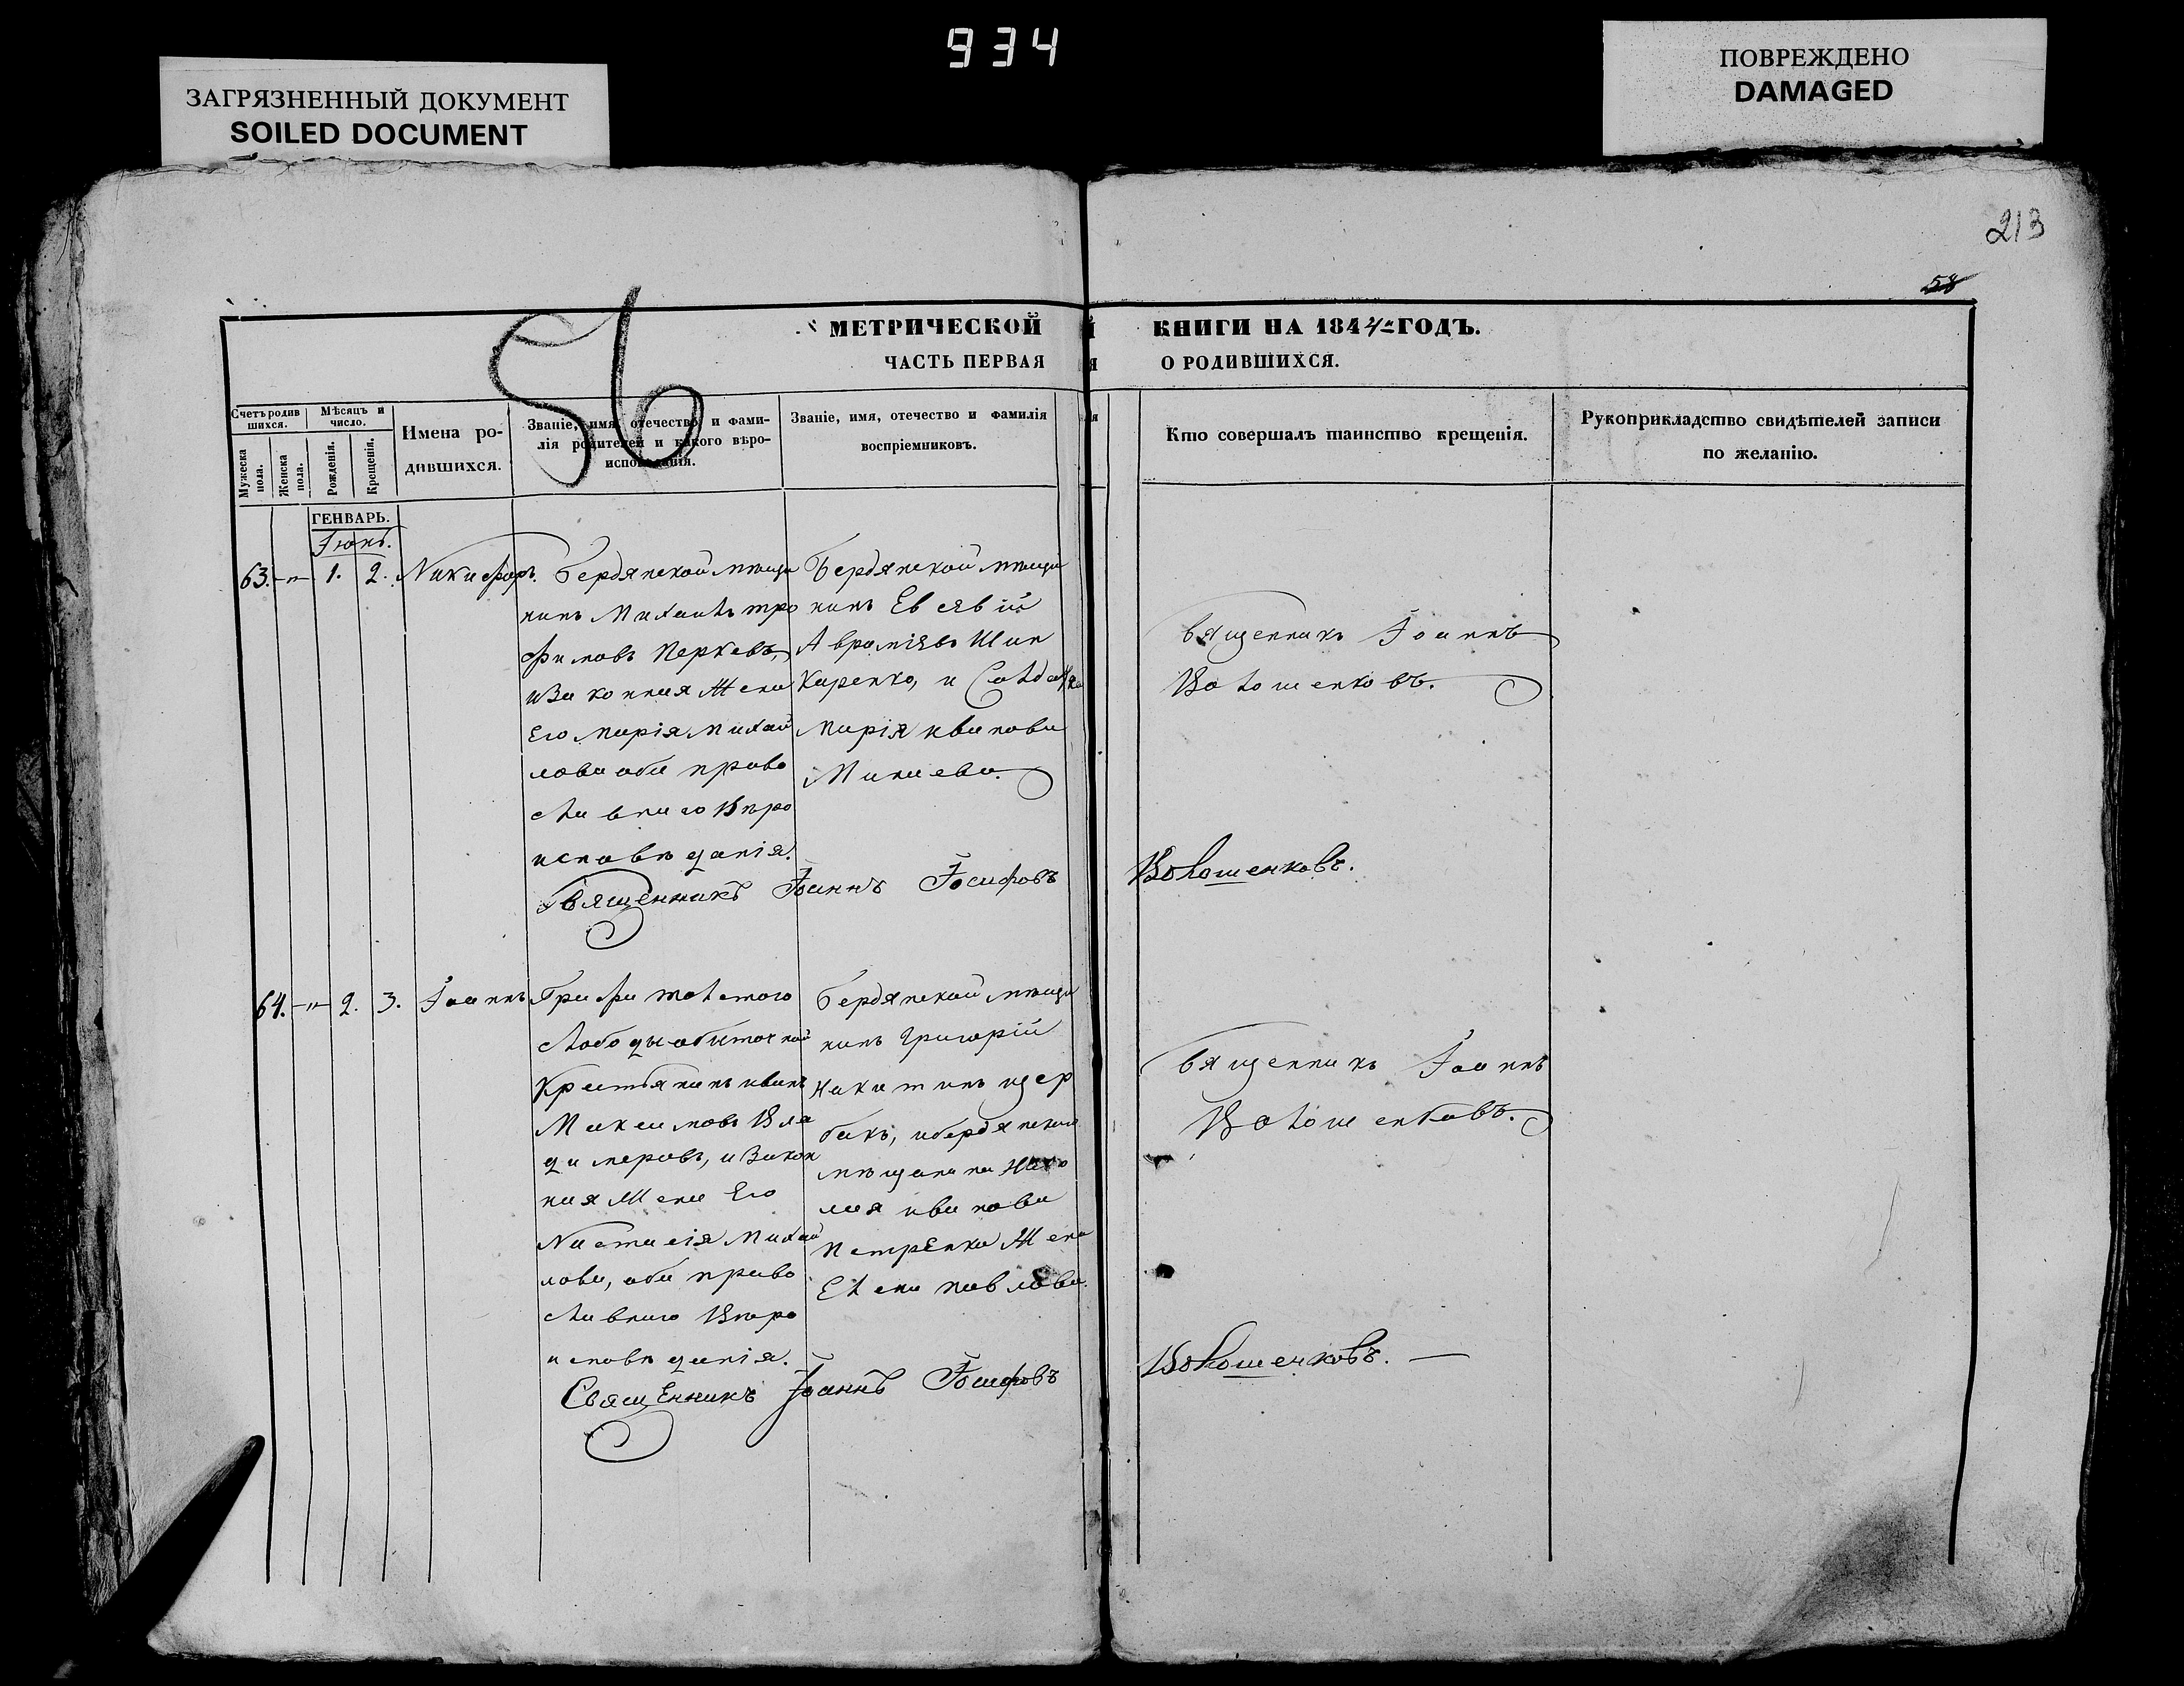 934
ЗАГРЯЗНЕННЫЙ ДОКУМЕНТ
SOILED DOCUMENT
ПОВРЕЖДЕНО
DAMAGED
213
58
56
МЕТРИЧЕСКОЙ
КНИГИ НА 1844 ГОДЪ.
ЧАСТЬ ПЕРВАЯ
О РОДИВШИХСЯ.
Счетъ родив
шихся.
Мужеска
пола.
Женска
пола.
Мѣсяцъ и
число.
Рожденія.
Крещенія.
Имена ро-
дившихся.
Званіе, имя, отечество, и фами-
лія родителей и какого вѣро-
исповѣданія.
Званіе, имя, отечество и фамилія
воспріемниковъ.
Кто совершалъ таинство крещенія.
Рукоприкладство свидѣтелей записи
по желанію.
ГЕНВАРЬ.
Іюнь.
63. -"- 1. 2. Никифоръ.
Бердянской мѣща
нинъ Михаилъ тро
фимовъ
иЗаконная Жена
Его Марія Михай
лова оба право
славнаго Вѣро
исповѣданія.
Бердянской мѣща
нинъ Евсявій
Авраміявъ Шин
каренко, и
Марія иванова
Минаева.
Священникъ Іоаннъ
Волошенковъ.
Священникъ Іоаннъ Іосифовъ Волошенковъ.
64. -"- 2. 3. Іоаннъ
Графа толстого
слободы обиточной
Крестьянинъ иванъ
Максимовъ Вла
димеровъ, иЗакон
ная Жена Его
Настасія Михай
лова, оба право
славнаго Вѣро
исповѣданія.
Бердянской мѣща
нинъ Григорій
Никитинъ щер
бакъ, ибердянскаго
мѣщанина
ивапова
Петренка Жена
Елена павлова.
Священникъ Іоаннъ
Волошенковъ.
Священникъ Іоаннъ Іосифовъ Волошенковъ. —